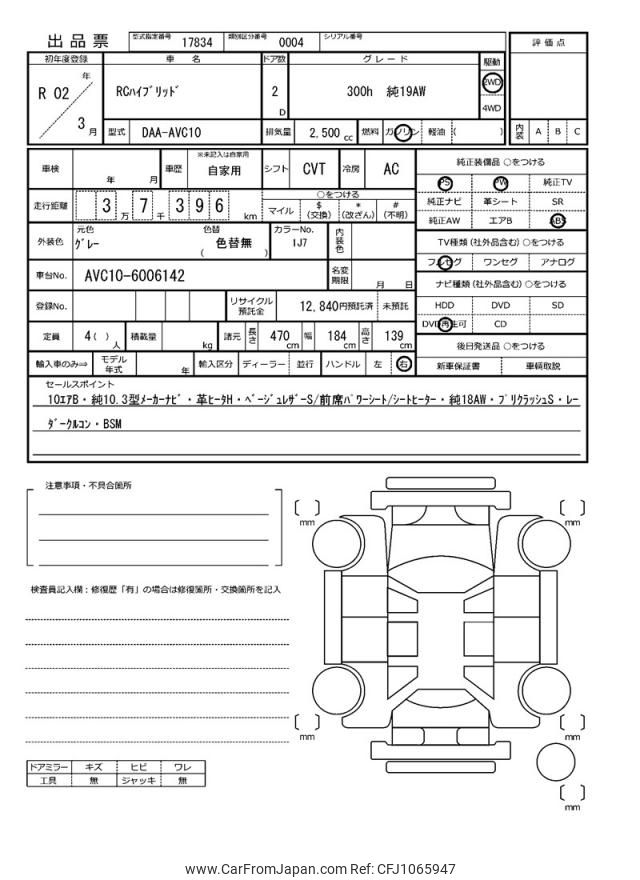 出品票 型式指定番号 17834 類別区分番号 0004 シリアル番号
評価点
初年度登録 車名 ドア数 グレード 駆動
R 02 年 3 月 RCﾊｲﾌﾞﾘｯﾄﾞ 2 D 300h 純19AW 2WD
4WD
型式 DAA-AVC10 排気量 2,500 cc 燃料 ガソリン 軽油 ( ) 内装 A B C
車検 年 月 車歴 ※未記入は自家用 自家用 シフト CVT 冷房 AC
純正装備品 ○をつける
PS PW 純正TV
純正ナビ 革シート SR
純正AW エアB ABS
走行距離 3 万 7 千 3 9 6 km ○をつける
マイル $(交換) *(改ざん) #(不明)
外装色 元色 ｸﾞﾚｰ 色替 ( 色替無 ) カラーNo. 1J7 内装色
TV種類 (社外品含む) ○をつける
フルセグ ワンセグ アナログ
車台No. AVC10-6006142 名変期限 月 日
ナビ種類 (社外品含む) ○をつける
HDD DVD SD
DVD再生可 CD
登録No. リサイクル預託金 12,840円預託済 未預託
定員 4 ( ) 人 積載量 kg 諸元 長さ 470 cm 幅 184 cm 高さ 139 cm
後日発送品 ○をつける
新車保証書 車輌取説
輸入車のみ⇒ モデル年式 年 輸入区分 ディーラー 並行 ハンドル 左 右
セールスポイント
10ｴｱB・純10.3型ﾒｰｶｰﾅﾋﾞ・革ﾋｰﾀH・ﾍﾞｰｼﾞｭﾚｻﾞｰS/前席ﾊﾟﾜｰｼｰﾄ/ｼｰﾄﾋｰﾀｰ・純18AW・ﾌﾟﾘｸﾗｯｼｭS・ﾚｰ
ﾀﾞｰｸﾙｺﾝ・BSM
注意事項・不具合箇所
検査員記入欄：修復歴「有」の場合は修復箇所・交換箇所を記入
[ ] mm
[ ] mm
[ ] mm
[ ] mm
[ ] mm
ドアミラー キズ ヒビ ワレ
工具 無 ジャッキ 無
www.CarFromJapan.com Ref: CFJ1065947